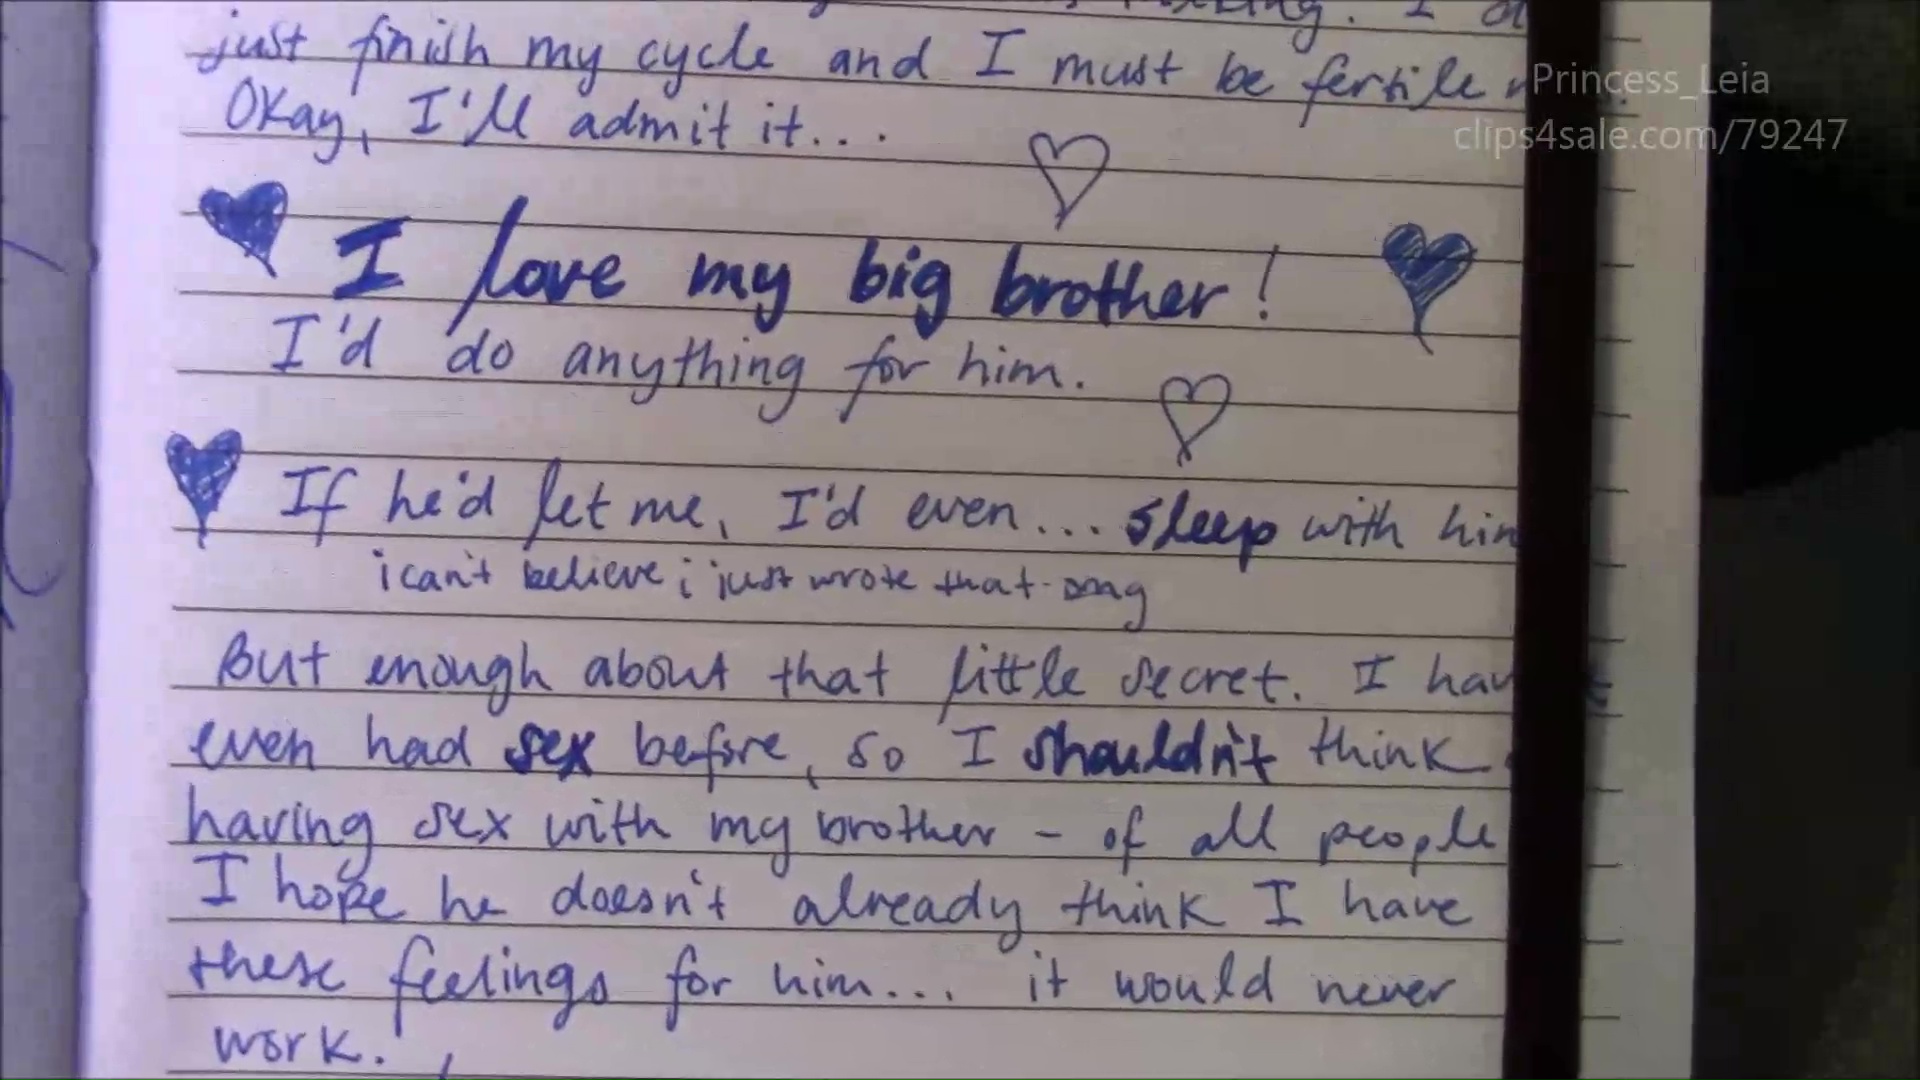 just finish my cycle and I must be fertile
Princess_Leia
Okay, I'll admit it...
clips4sale.com/79247
I love my big brother!
I'd do anything for him.
If he'd let me, I'd even... sleep with
i can't believe i just wrote that. omg
But enough about that little secret. I
even had sex before, so I shouldn't think
having sex with my brother - of all people
I hope he doesn't already think I have
these feelings for him... it would never
work.